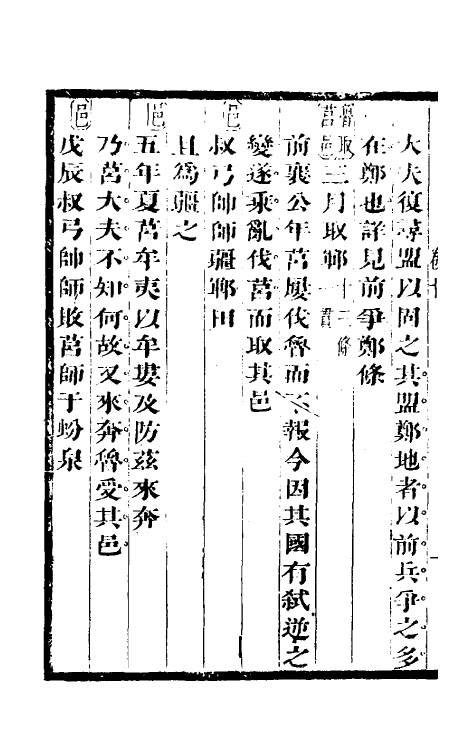 大夫復尋盟以固之其盟鄭地者以前兵爭之多
在鄭也詳見前爭鄭條
魯取莒邑
三月取鄆十二條一貫
前襄公年莒屢伐魯而不報今因其國有弒逆之
變遂乘亂伐莒而取其邑
邑
叔弓帥師疆鄆田
且為疆之
邑
五年夏莒牟夷以牟婁及防茲來奔
乃莒大夫不知何故又來奔魯愛其邑
邑
戊辰叔弓帥師敗莒師于蚡泉